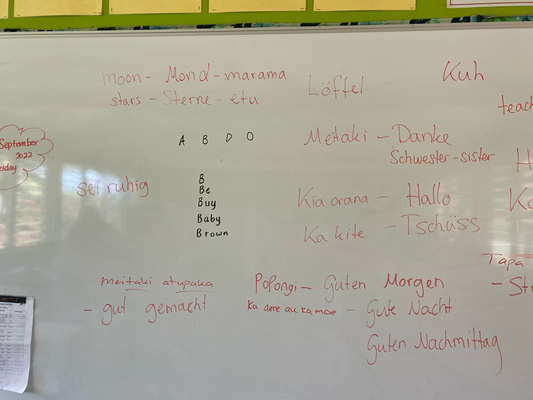 moon - Mond - marama
stars - Sterne - etu
Löffel
Kuh
teac
September
2022
A B D O
Meitaki - Danke
Schwester - sister
sei ruhig
B
Be
Buy
Baby
Brown
Kia orana - Hallo
Ka kite - Tschüss
Tapa
- St
meitaki atupaka
- gut gemacht
Popongi - Guten Morgen
- Gute Nacht
Guten Nachmittag